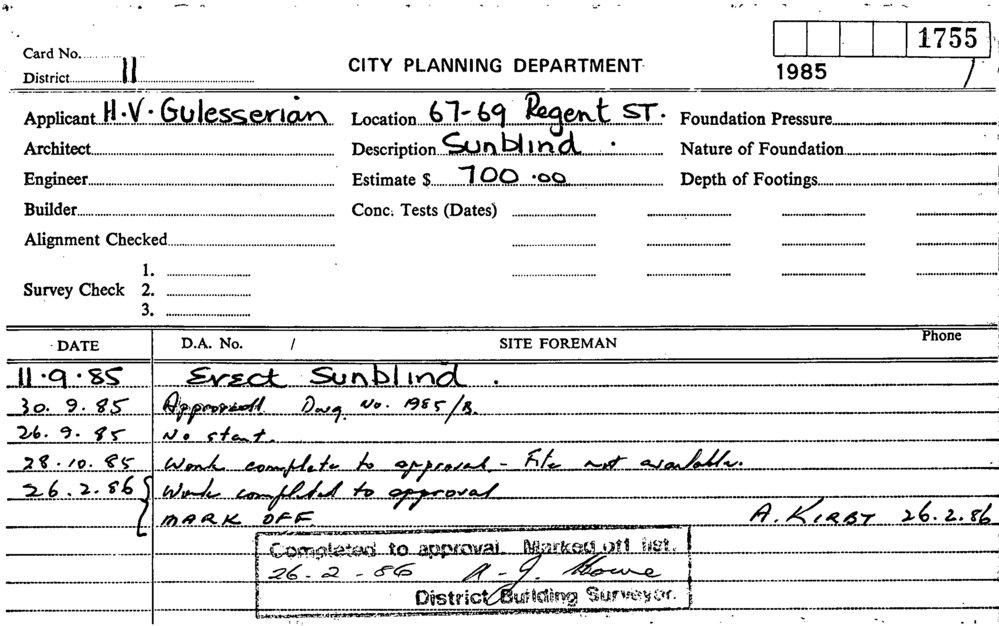 1755
Card No.
District 11
CITY PLANNING DEPARTMENT
1985 /
Applicant H.V. Gulesserian Location 67-69 Regent ST. Foundation Pressure
Architect Description Sunblind . Nature of Foundation
Engineer Estimate $ 700.00 Depth of Footings
Builder Conc. Tests (Dates)
Alignment Checked
1.
Survey Check 2.
3.
DATE D.A. No. / SITE FOREMAN Phone
11.9.85 Erect Sunblind .
30.9.85 Approved Dwg No. 1985/B.
26.9.85 No start.
28.10.85 Work complete to approval - File not available.
26.2.86 Work completed to approval
MARK OFF. A. KIRBY 26.2.86
Completed to approval. Marked off list.
26-2-86 A. J.
District Building Surveyor.